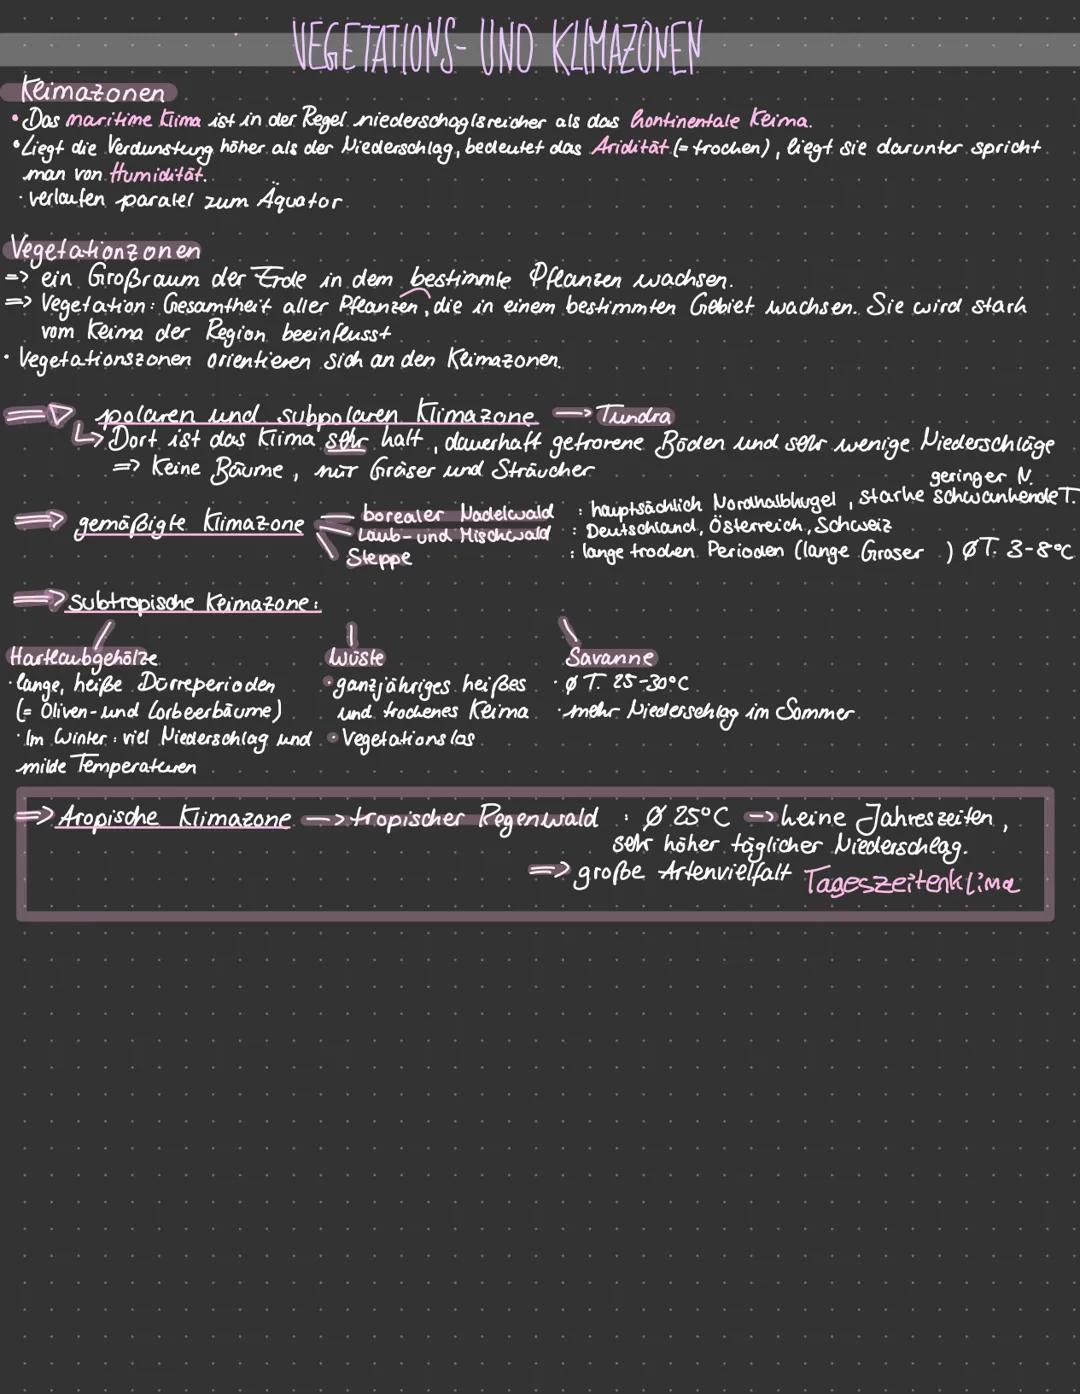 VEGETATIONS- UND KLIMAZONEN
Klimazonen
• Das maritime Klima ist in der Regel niederschaglsreicher als das kontinentale Klima.
• Liegt die Verdunstung höher als der Niederschlag, bedeutet das Aridität (= trocken), liegt sie darunter spricht
man von Humidität.
· verlaufen paralel zum Äquator
Vegetationzonen
=> ein Großraum der Erde in dem bestimmte Pflanzen wachsen.
=> Vegetation: Gesamtheit aller Pflanzen, die in einem bestimmten Gebiet wachsen. Sie wird stark
vom Klima der Region beeinflusst
· Vegetationszonen orientieren sich an den Klimazonen.
=> polaren und subpolaren Klimazone —> Tundra
↳ Dort ist das Klima sehr kalt, dauerhaft gefrorene Böden und sehr wenige Niederschläge
=> Keine Bäume, nur Gräser und Sträucher
=> gemäßigte Klimazone
borealer Nadelwald : hauptsächlich Nordhalbkugel, starke schwankende T. geringer N.
Laub- und Mischwald : Deutschland, Österreich, Schweiz
Steppe : lange trocken Perioden (lange Gräser ) Ø T. 3-8°C
=> Subtropische Klimazone:
Hartlaubgehölze
· lange, heiße Dürreperioden
(= Oliven- und Lorbeerbäume)
· Im Winter: viel Niederschlag und
milde Temperaturen
Wüste
• ganzjähriges heißes
und trockenes Klima
• Vegetationslos
Savanne
· Ø T. 25-30°C
· mehr Niederschlag im Sommer
=> Tropische Klimazone —> tropischer Regenwald : Ø 25°C —> keine Jahreszeiten,
sehr höher täglicher Niederschlag.
=> große Artenvielfalt Tageszeitenklima